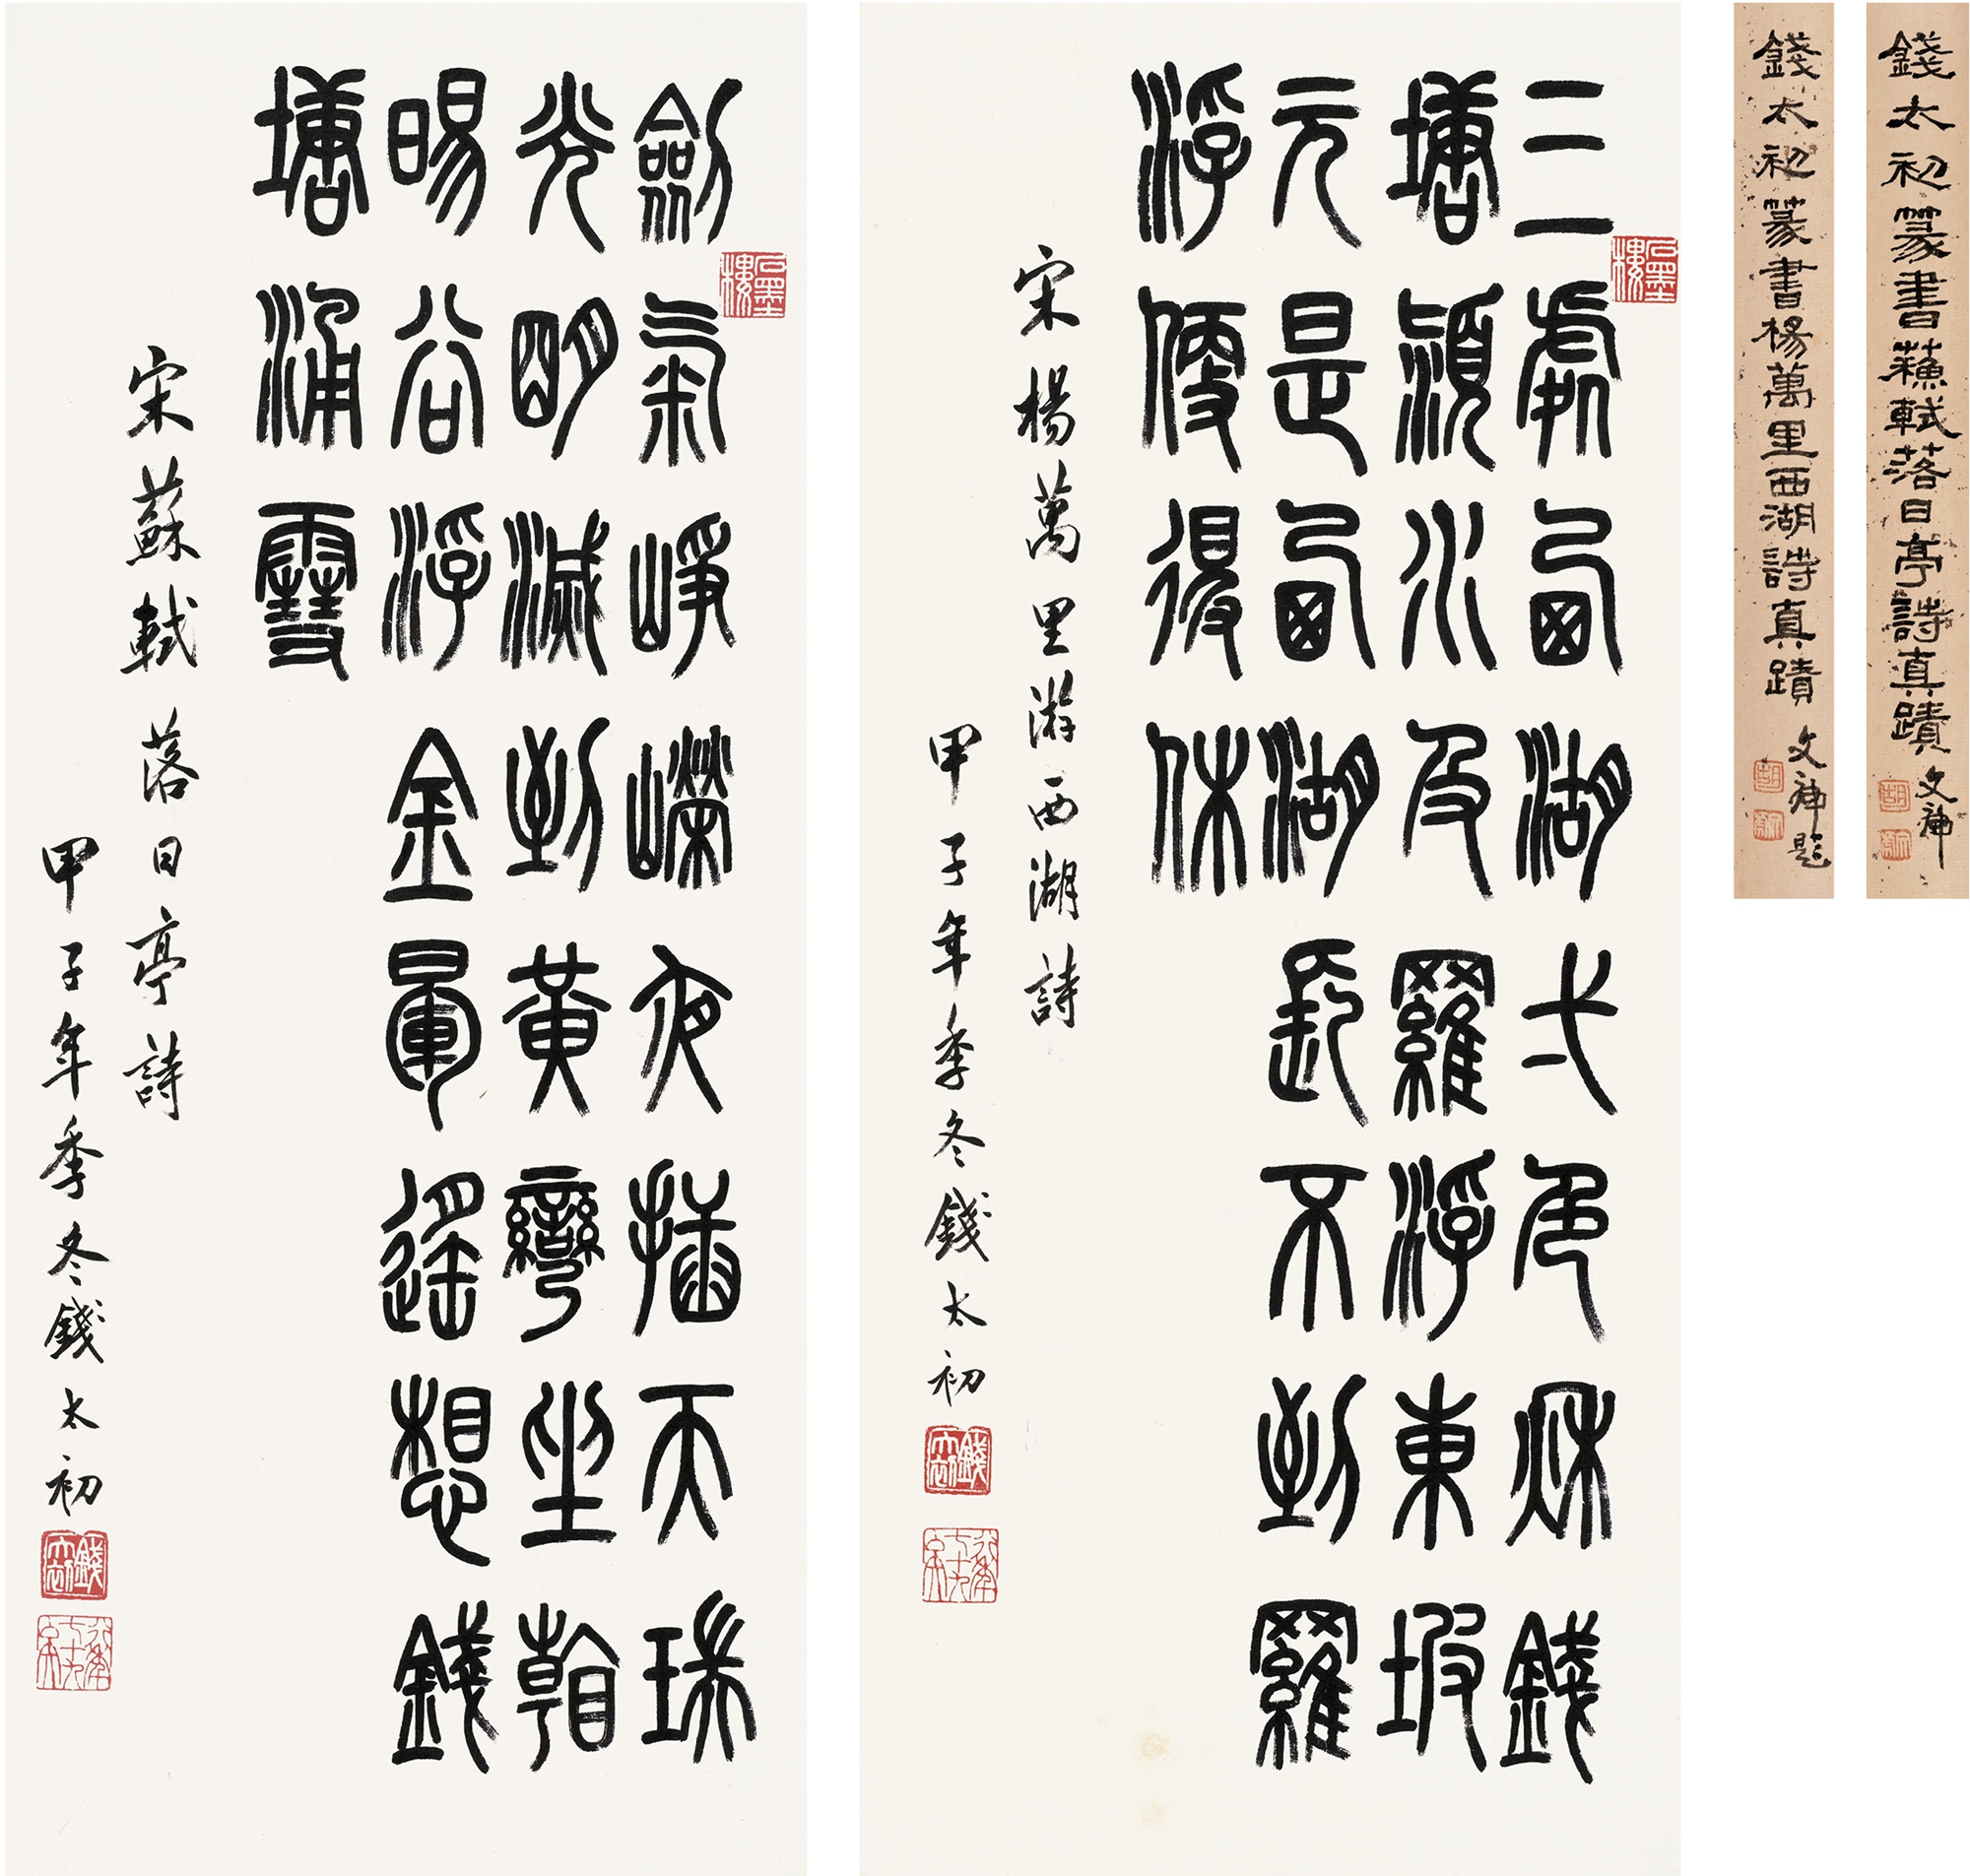 錢太初篆書蘇軾落日亭詩真蹟 文
錢太初篆書楊萬里西湖詩真蹟 文 題
三處西湖弌色秋錢
塘潁水及羅浮東坡
元是西湖長不到羅
浮便得休
宋楊萬里游西湖詩
甲子年季冬錢太初
石墨樓
劍氣崢嶸夜插天瑞
光明滅到黃彎坐看
暘谷浮金暈遙想錢
塘涌雪
宋蘇軾落日亭詩
甲子年季冬錢太初
石墨樓